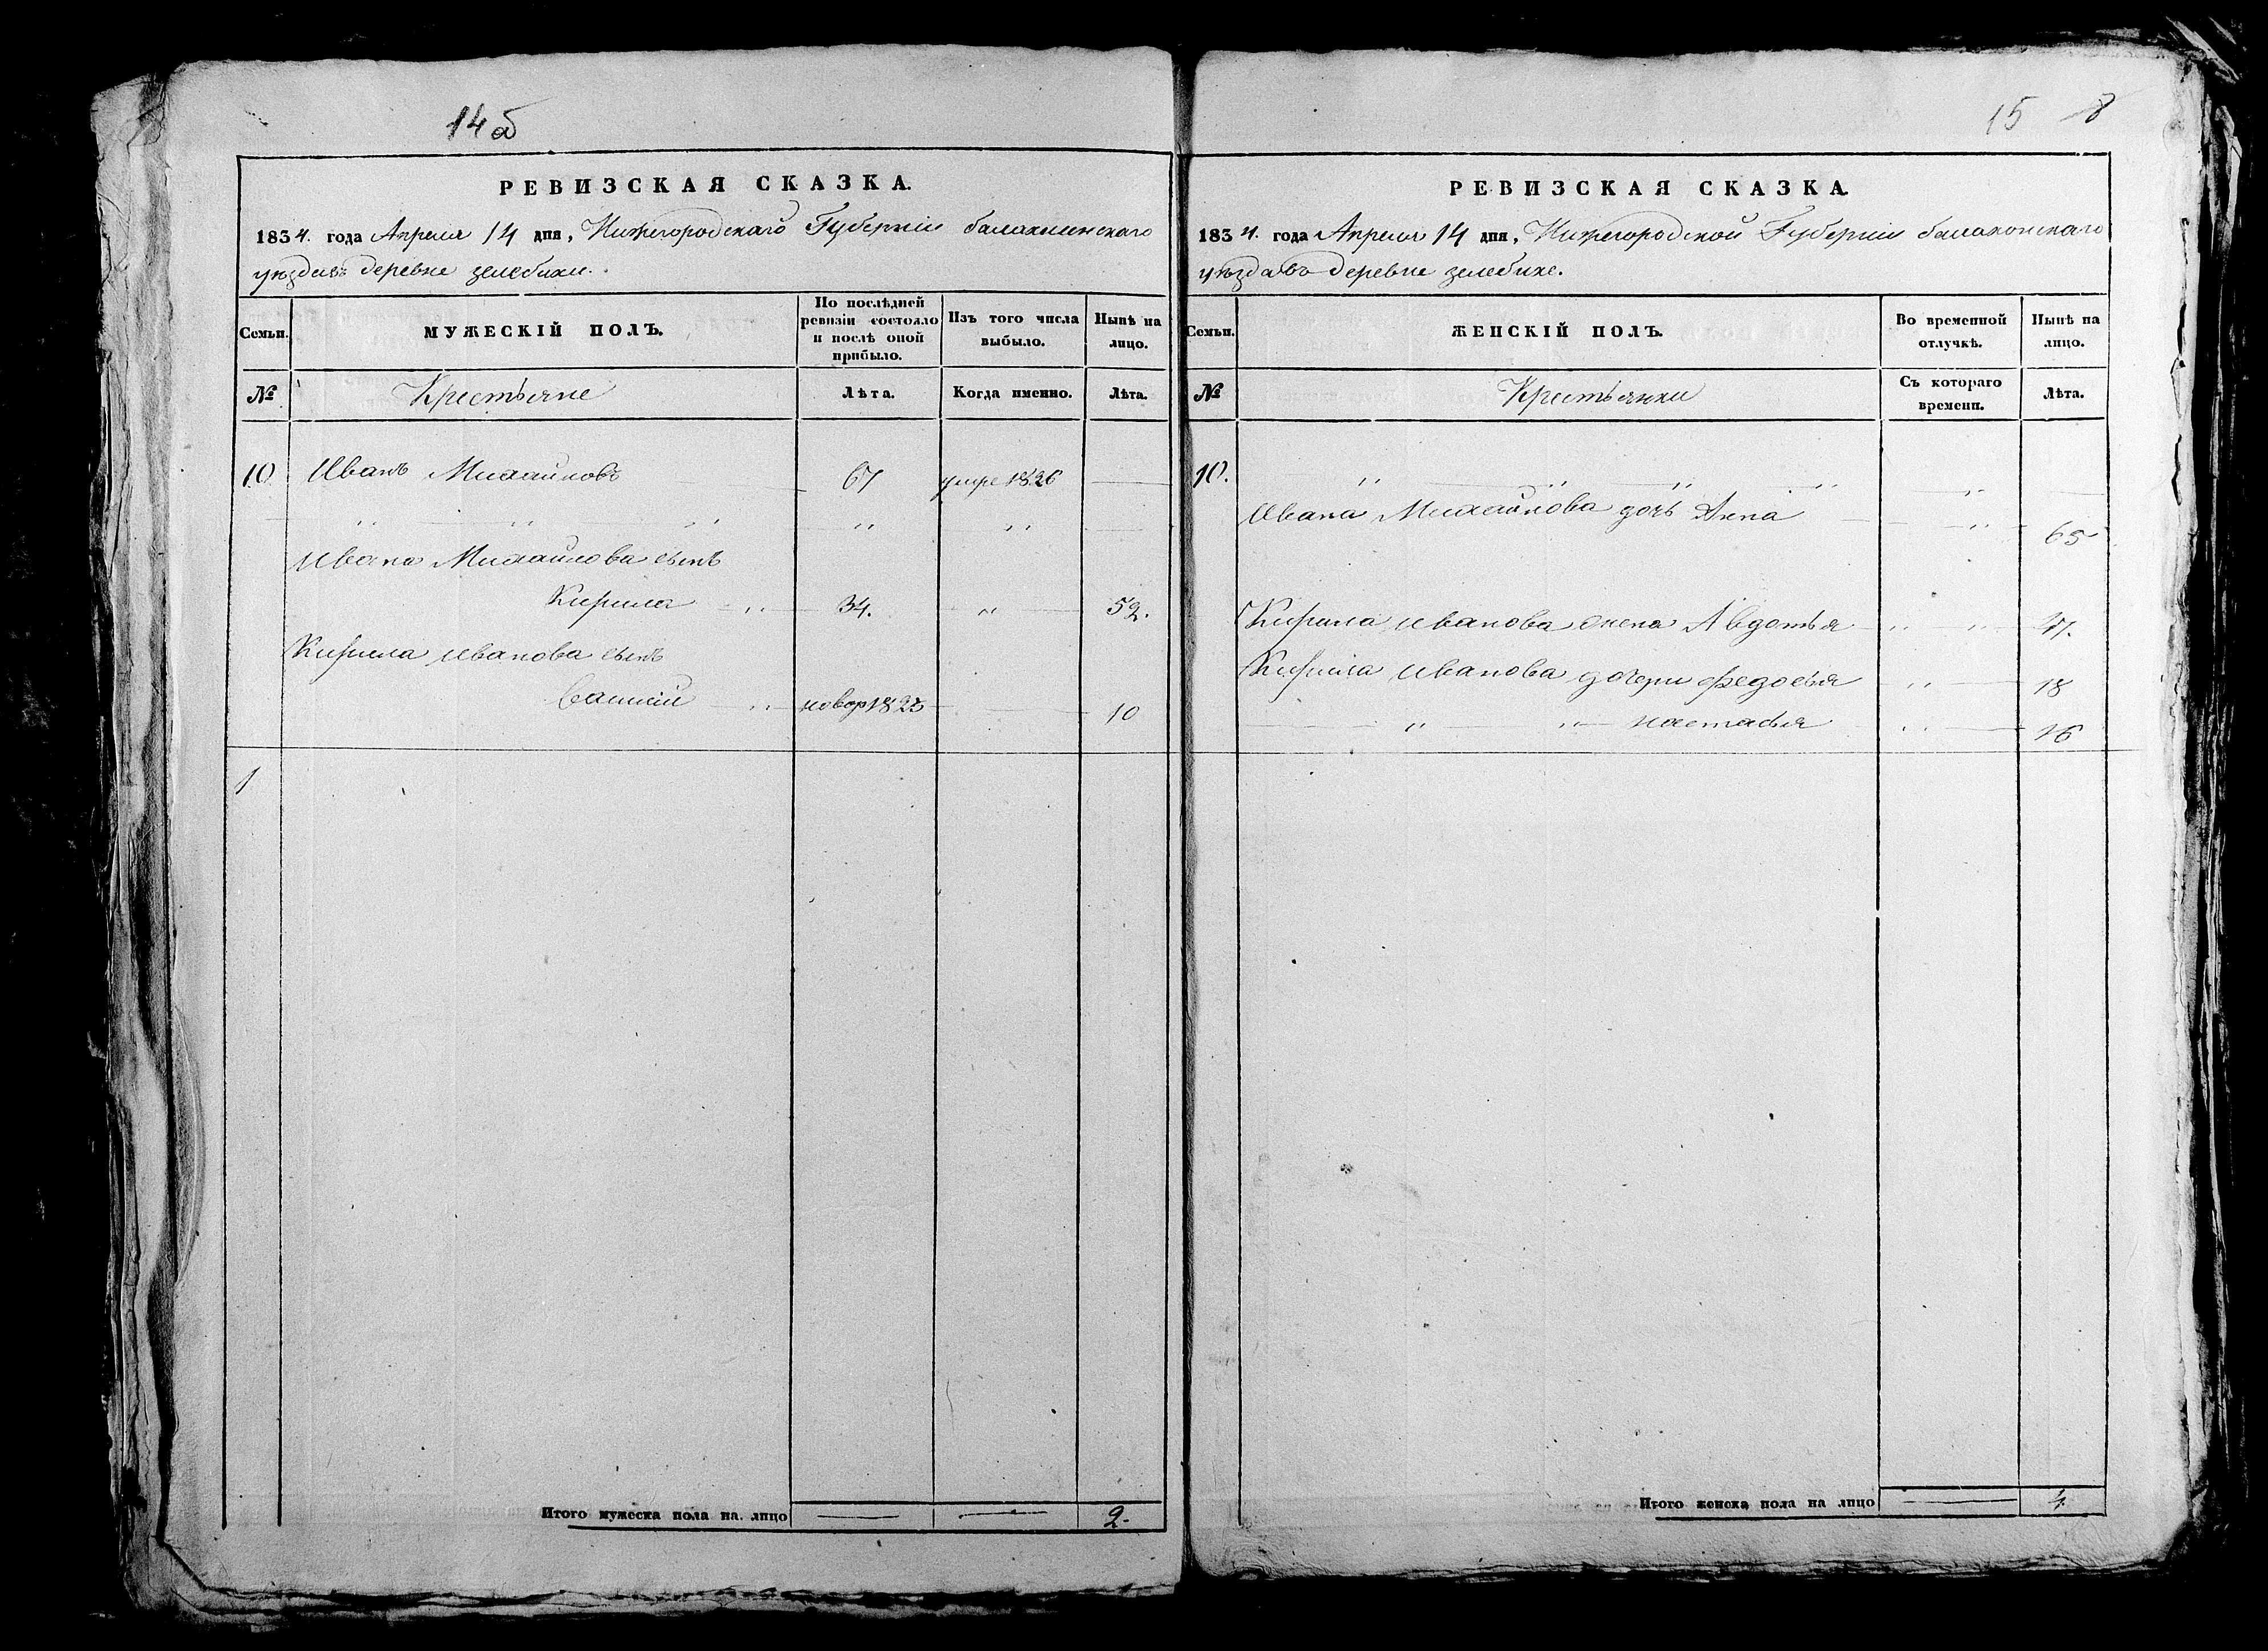 14 об
РЕВИЗСКАЯ СКАЗКА.
1834. года Апреля 14 дня, Нижегородскаго Губернiи балахненскаго
уезда въ деревне зелебихи.
Семьи. МУЖЕСКІЙ ПОЛЪ. По послѣдней ревизіи состояло и послѣ оной прибыло. Изъ того числа выбыло. Нынѣ на лицо.
№ Крестьяне Лѣта. Когда именно. Лѣта.
10 Иванъ Михайловъ 67 умре 1826
" " " " "
Ивана Михайлова сынъ
Кирила " 34. " 52.
Кирила иванова сынъ
Василiй " новор 1823 10
1
Итого мужеска пола на лицо 2.
15 8
РЕВИЗСКАЯ СКАЗКА.
1834. года Апреля 14 дня, Нижегородской Губернiи балахонскаго
уезда въ деревне зелебихе.
Семьи. ЖЕНСКІЙ ПОЛЪ. Во временной отлучкѣ. Нынѣ на лицо.
№ Крестьянки Съ котораго времени. Лѣта.
10. " " " " "
Ивана Михайлова дочь Анна " 65
Кирила иванова жена Авдотья " " 47.
Кирила иванова дочери федосья " 18
" " настасья " 16
Итого женска пола на лицо 4.